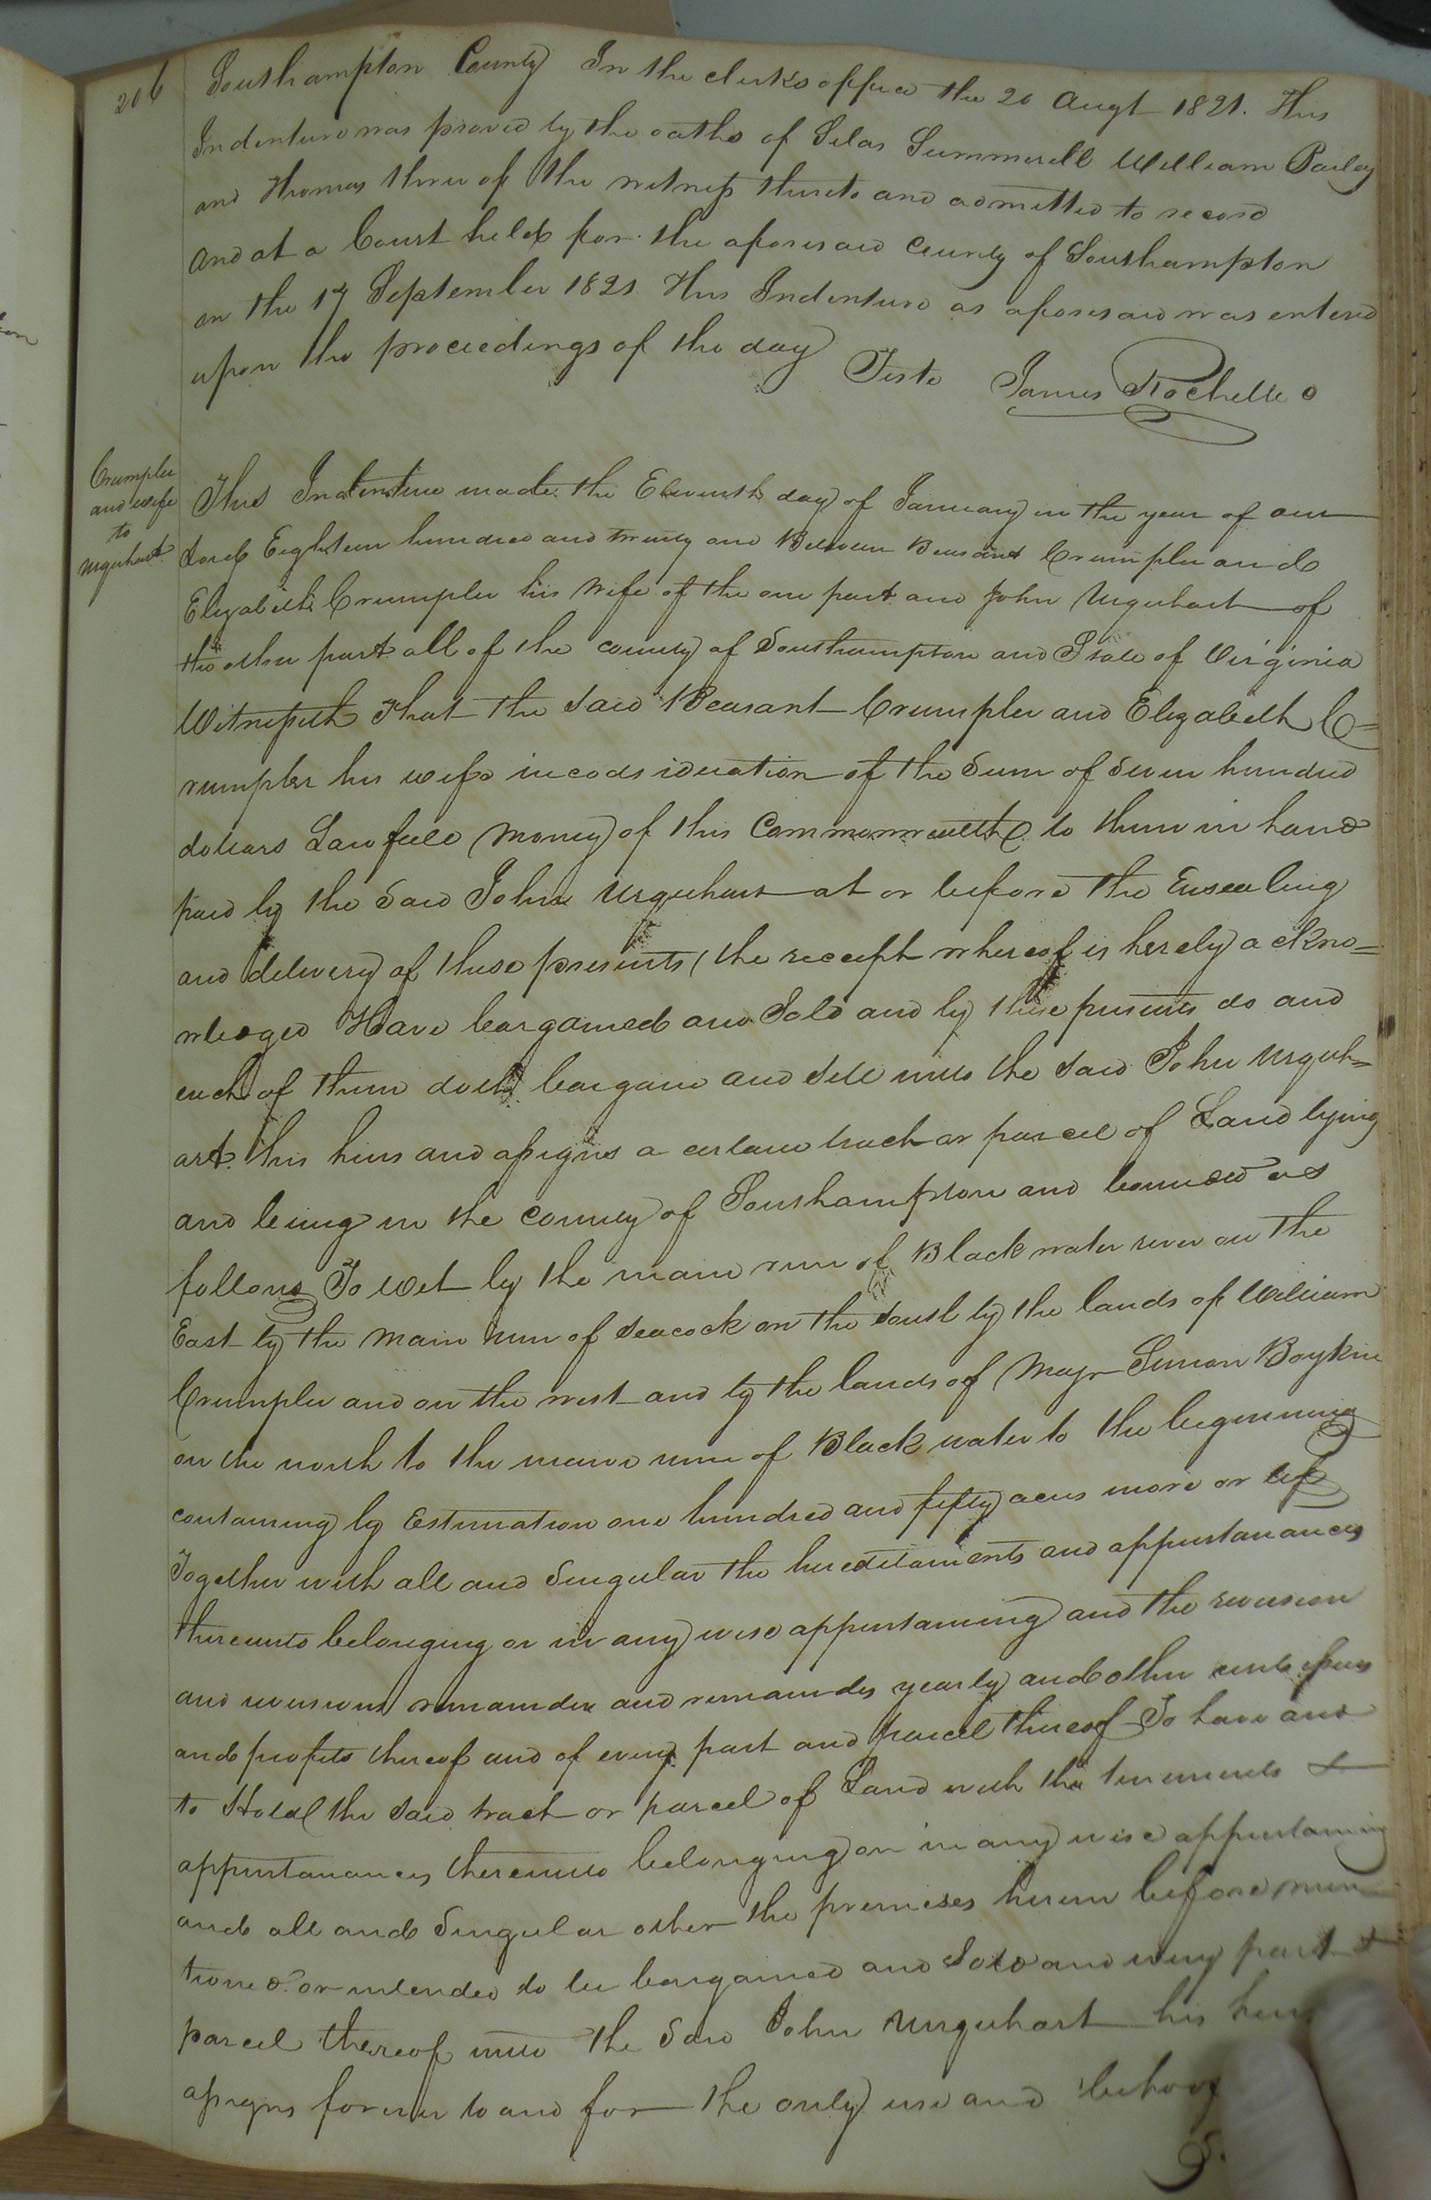 206
Southampton County In the clerks office the 20 Augt 1821. This
Indenture was proved by the oaths of Silas Summerell William Bailey
and Thomas three of the witness thereto and admitted to record
And at a Court held for the aforesaid County of Southampton
on the 17 September 1821 This Indenture as aforesaid was entered
upon the proceedings of the day
Teste James Rochelle
Crumpler
and wife
to
Urquhart
This Indenture made the Eleventh day of January in the year of our
Lord Eighteen hundred and twenty one Between Beasant Crumpler and
Elizabeth Crumpler his wife of the one part and John Urquhart of
the other part all of the county of Southampton and State of Virginia
Witnesseth That the said Beasant Crumpler and Elizabeth C=
rumpler his wife in codsideration of the Sum of Seven hundred
dollars Lawfull money of this Commonwealth to them in hand
paid by the Said John Urquhart at or before the Ensealing
and delivery of these presents (the receipt whereof is hereby ackno=
wledged Have bargained and Sold and by these presents do and
each of them doth bargain and sell unto the said John Urquh=
art his heirs and assigns a certain tract or parcel of Land lying
and being in the county of Southampton and bounded as
follows To wit by the main run of Black water river on the
East by the main run of Seacock on the South by the lands of William
Crumpler and on the west and by the lands of Majr Simon Boykin
on the north to the main run of Black water to the beginning
containing by Estimation one hundred and fifty acres more or less
Together with all and Singular the hereditaments and appurtanances
thereunto belonging or in any wise appurtaining and the reversion
and reversions remainder and remainders yearly and other rents issues
and profits thereof and of every part and parcel thereof To have and
to Hold the said tract or parcel of Land with the tenements &
appurtanances thereunto belonging or in any wise appurtaining
and all and Singular other the premises herein before men
tioned or intended to be bargained and Sold and every part &
parcel thereof unto the Said John Urquhart his heirs
assigns forever to and for the only use and behoof